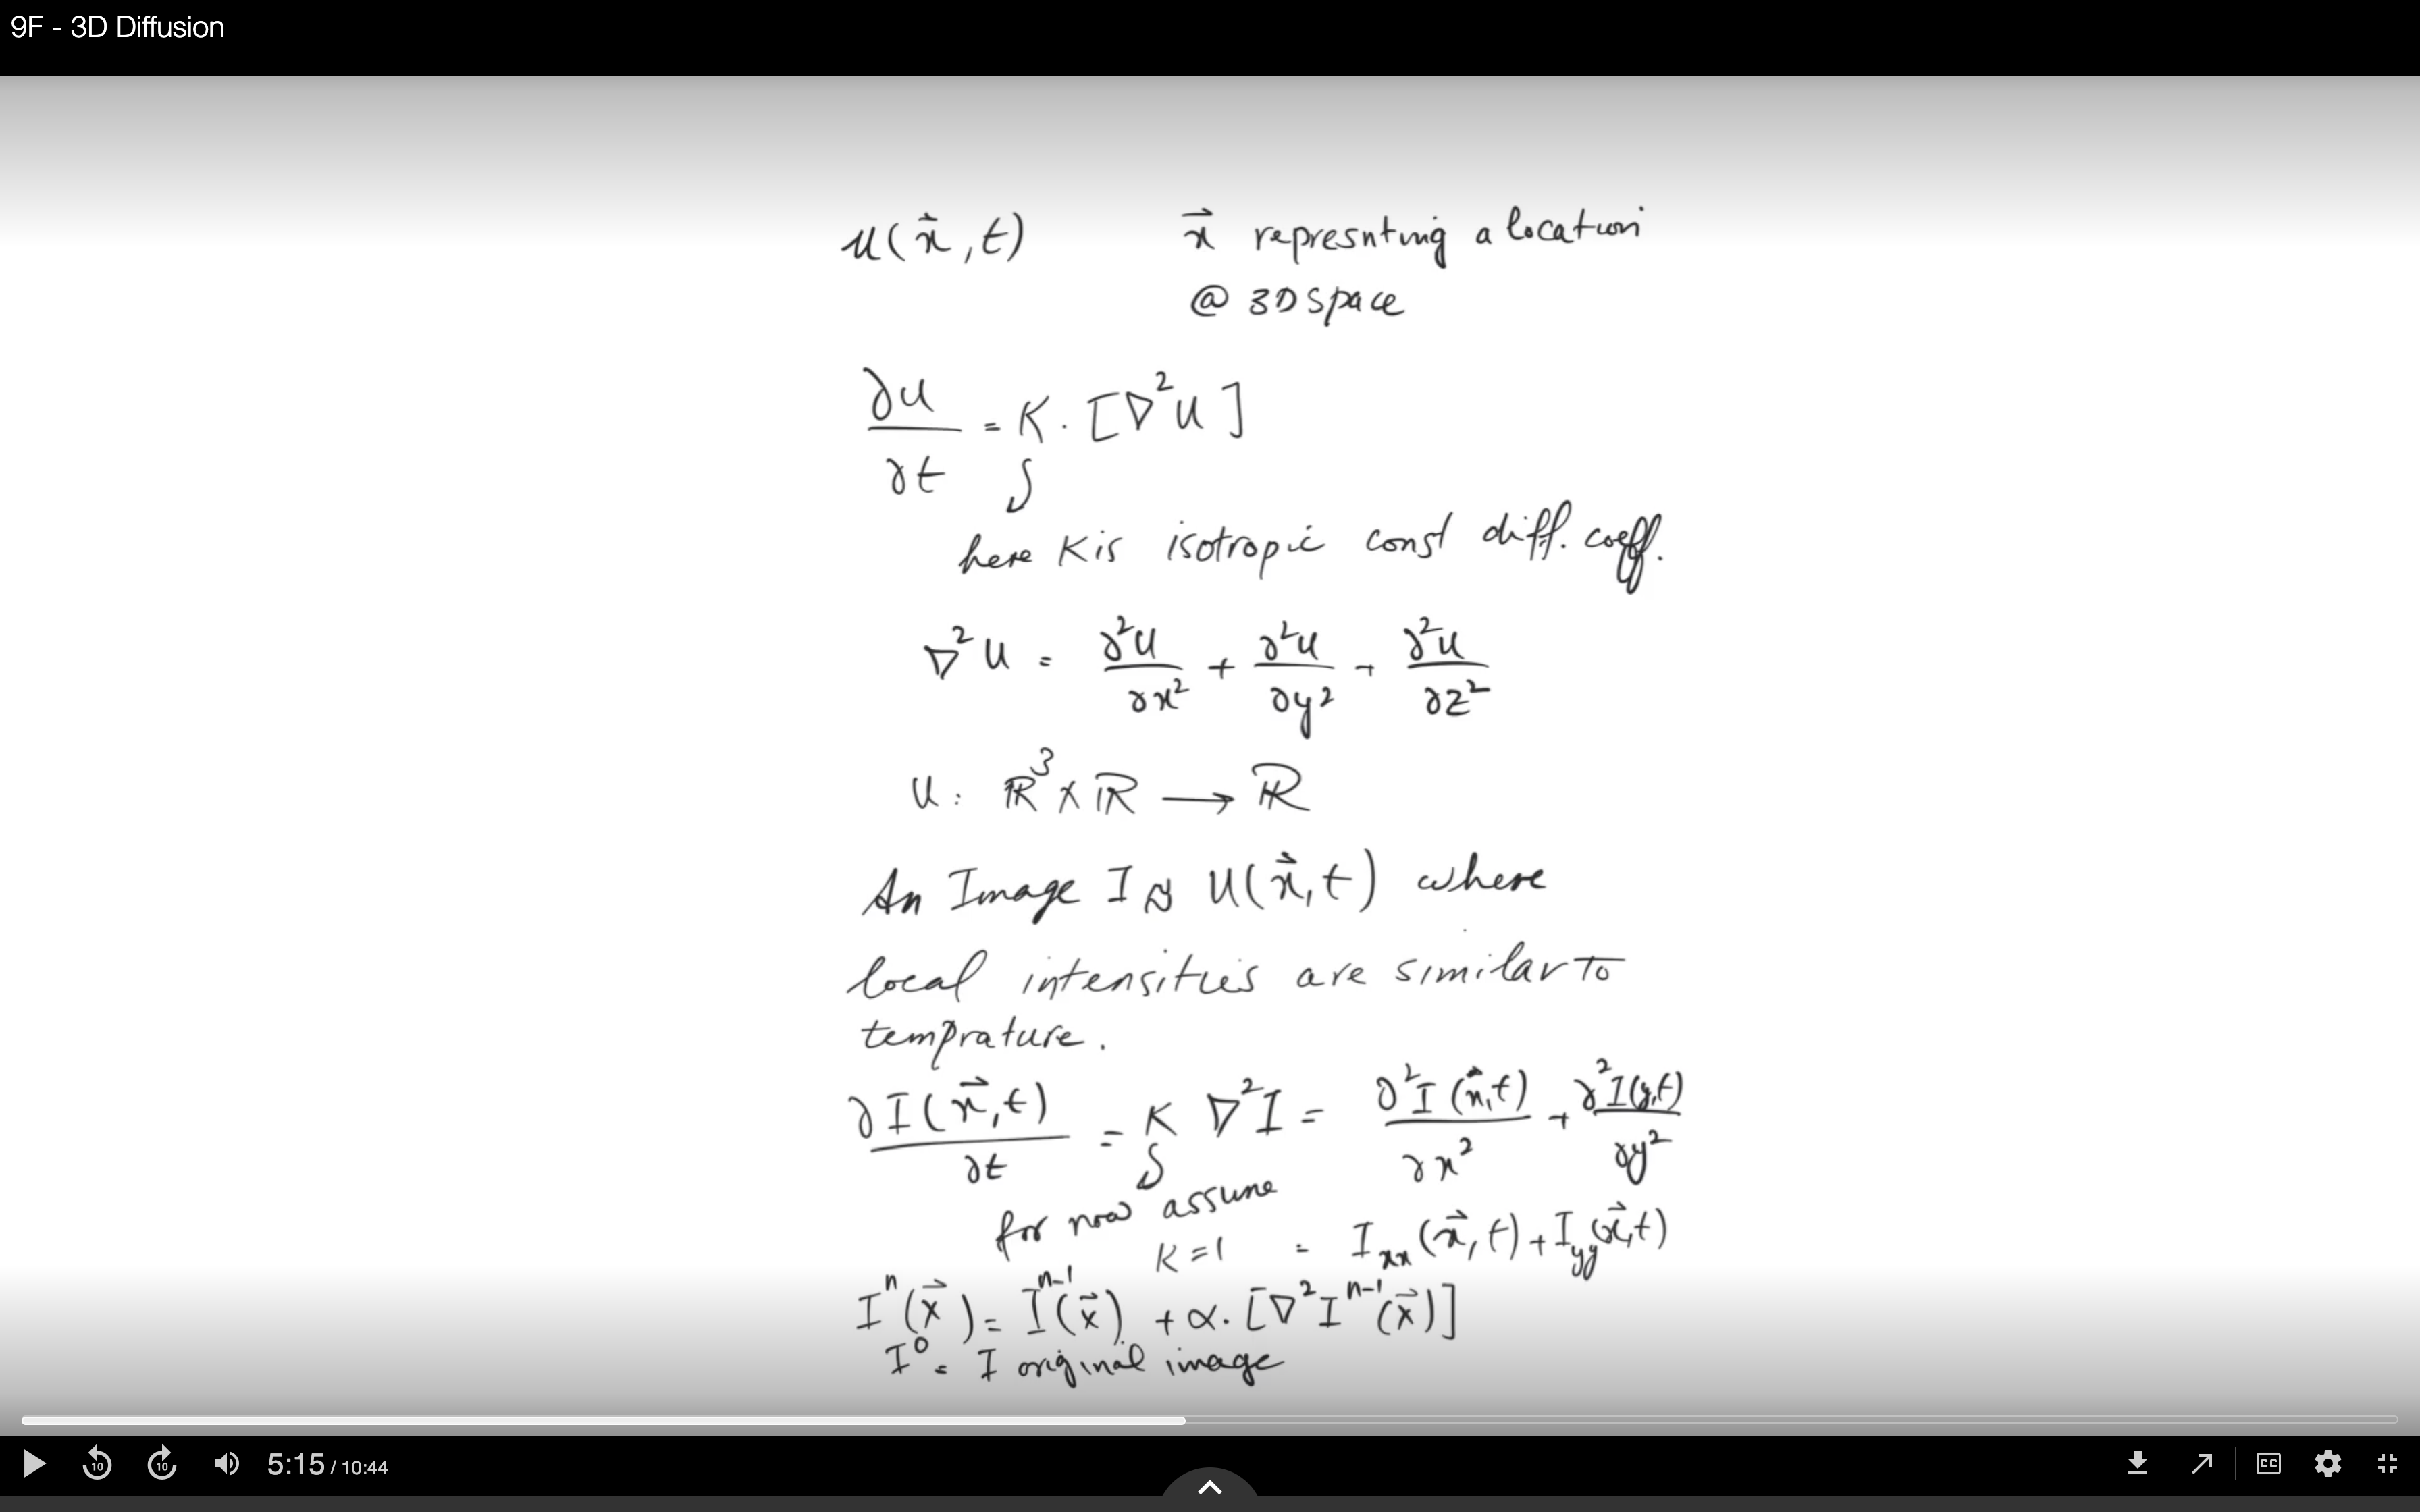 9F - 3D Diffusion
u(x⃗,t) x⃗ represnting a location
@ 3D space
∂u/∂t = K · [∇²u]
here K is isotropic const diff. coeff.
∇²u = ∂²u/∂x² + ∂²u/∂y² + ∂²u/∂z²
u : ℝ³ × ℝ → ℝ
An Image I is u(x⃗,t) where
local intensities are similar to
temprature.
∂I(x⃗,t)/∂t = K ∇²I = ∂²I(x⃗,t)/∂x² + ∂²I(y,t)/∂y²
for now assume
K=1 = Iₓₓ(x⃗,t) + I_yy(x⃗,t)
Iⁿ(x⃗) = Iⁿ⁻¹(x⃗) + α·[∇²Iⁿ⁻¹(x⃗)]
I⁰ = I original image
10 10 5:15 / 10:44 CC